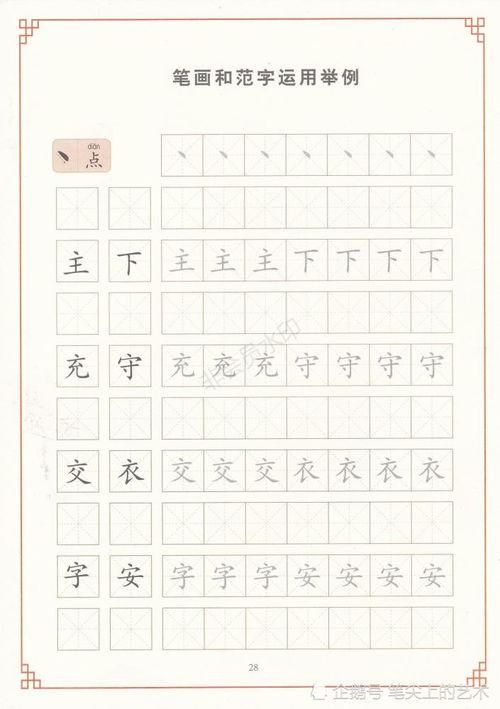 笔画和范字运用举例
diǎn
丶 点 丶 丶 丶 丶 丶 丶 丶
主 下 主 主 主 下 下 下 下
充 守 充 充 充 守 守 守 守
非会员水印
交 衣 交 交 交 衣 衣 衣 衣
字 安 字 字 字 安 安 安 安
28
企鹅号 笔尖上的艺术